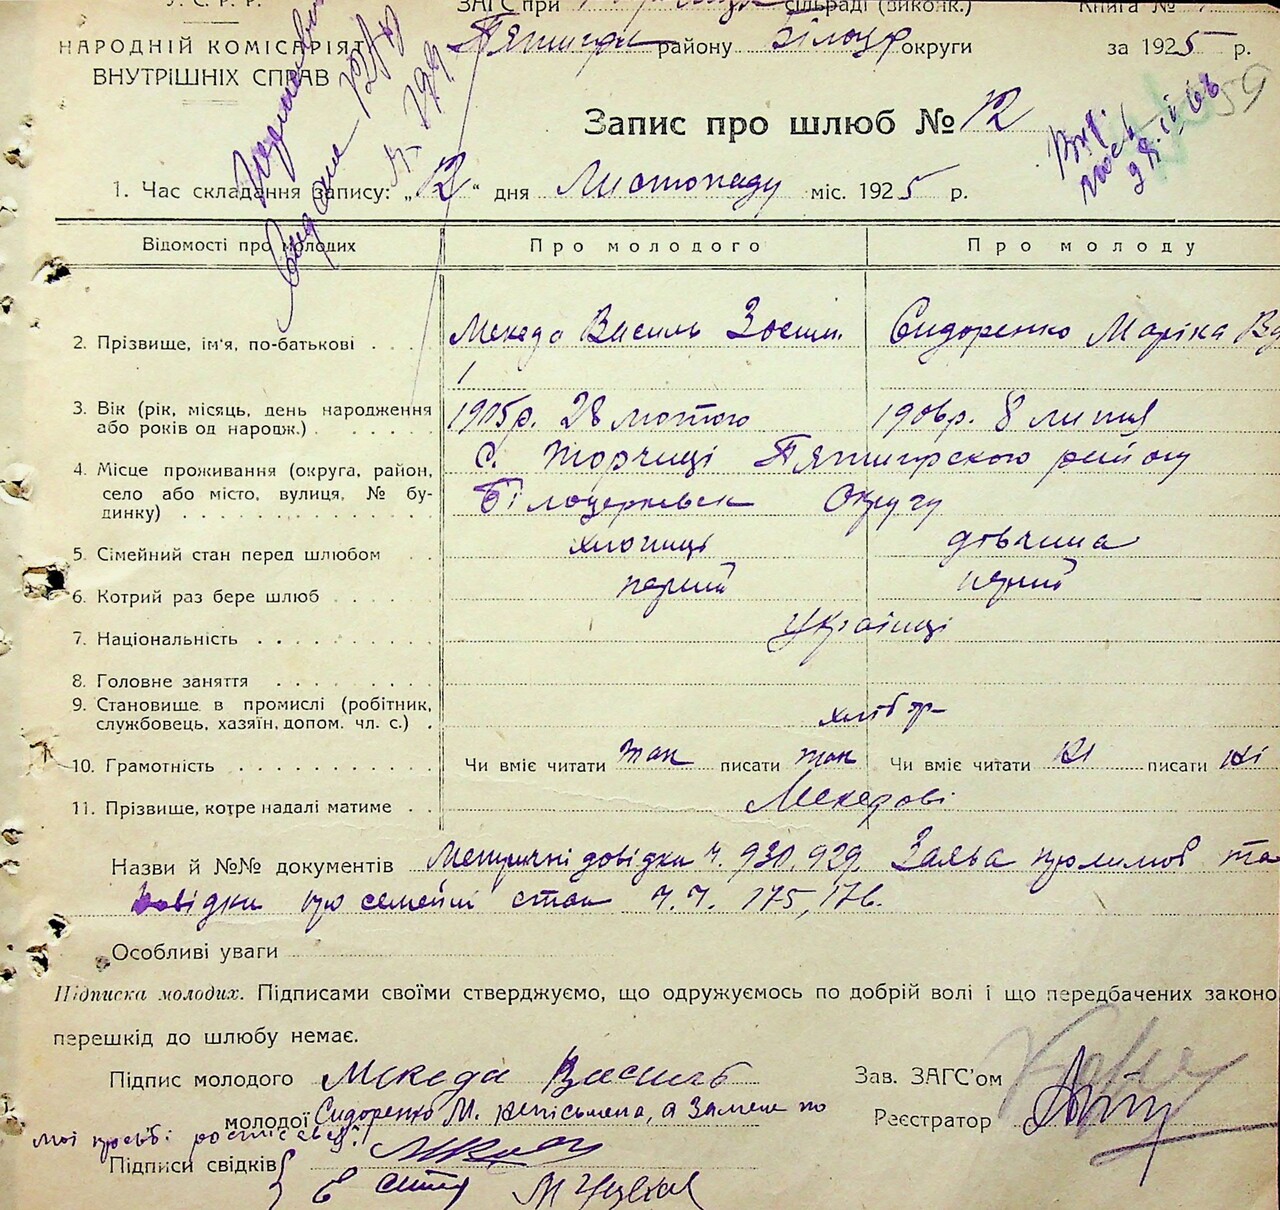 У. С. Р. Р.
ЗАГС при сільраді (виконк.)
Книга №
НАРОДНІЙ КОМІСАРІЯТ
ВНУТРІШНІХ СПРАВ
району Білоцер округи
за 1925 р.
59
Запис про шлюб № 12
1. Час складання запису: „12“ дня Листопаду міс. 1925 р.
Відомості про молодих
Про молодого
Про молоду
2. Прізвище, ім'я, по-батькові
Мекеда Василь Зосим.
Сидоренко Маріка
3. Вік (рік, місяць, день народження або років од народж.)
1905р. 28 лютого
1906р. 8 липня
4. Місце проживання (округа, район, село або місто, вулиця, № будинку)
с. Торчиці Пятигірского району
Білоцерківск Округу
5. Сімейний стан перед шлюбом
хлопиць
дівчина
6. Котрий раз бере шлюб
перший
перший
7. Національність
Українці
8. Головне заняття
9. Становище в промислі (робітник, службовець, хазяїн, допом. чл. с.)
хлібор
10. Грамотність
Чи вміє читати так писати так
Чи вміє читати ні писати ні
11. Прізвище, котре надалі матиме
Мекедові
Назви й №№ документів Метричні довідки ч. 930. 929. Заява про шлюб та
довідки про семейні стан ч.ч. 175, 176.
Особливі уваги
Підписка молодих. Підписами своїми стверджуємо, що одружуємось по добрій волі і що передбачених законо
перешкід до шлюбу немає.
Підпис молодого Мекеда Василь
Зав. ЗАГС'ом
молодої Сидоренко М. неписьмена, а за мене по
Реєстратор
моі просьбі
Підписи свідків